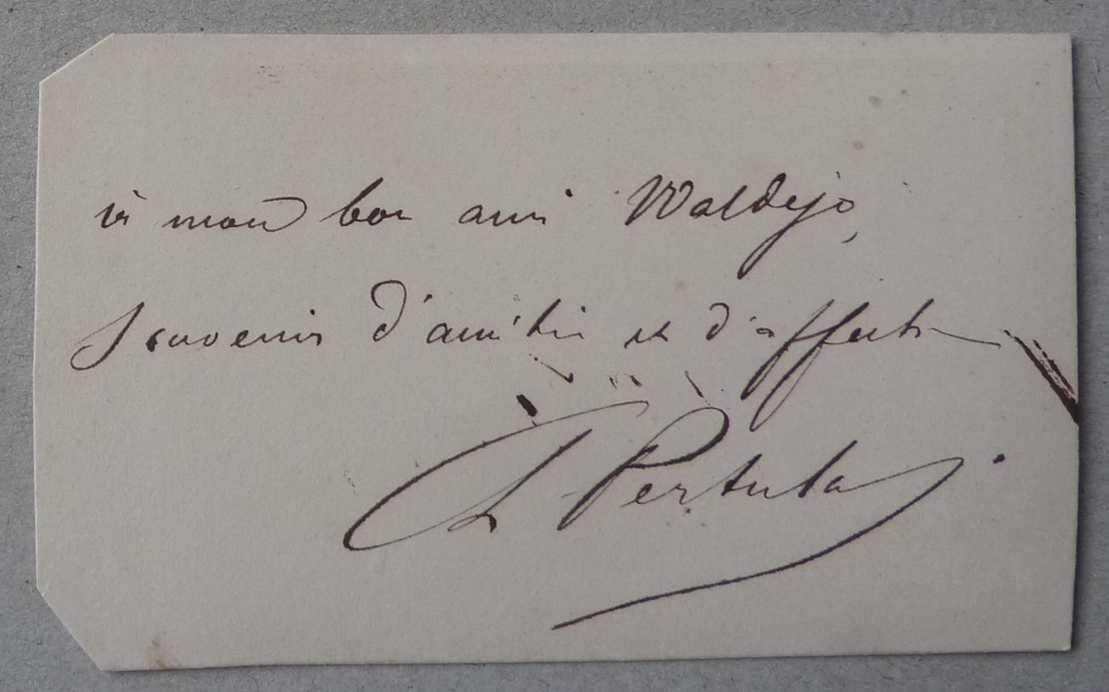 à mon bon ami Waldejo,
Souvenir d'amitié et d'affection
Pertula